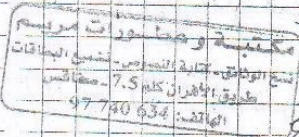 مكتبة و منشورات مريم
نسخ الوثائق - كتابة النصوص - تسفير البطاقات
طريق الأفران كلم 7.5 - صفاقس
الهاتف: 97 740 634